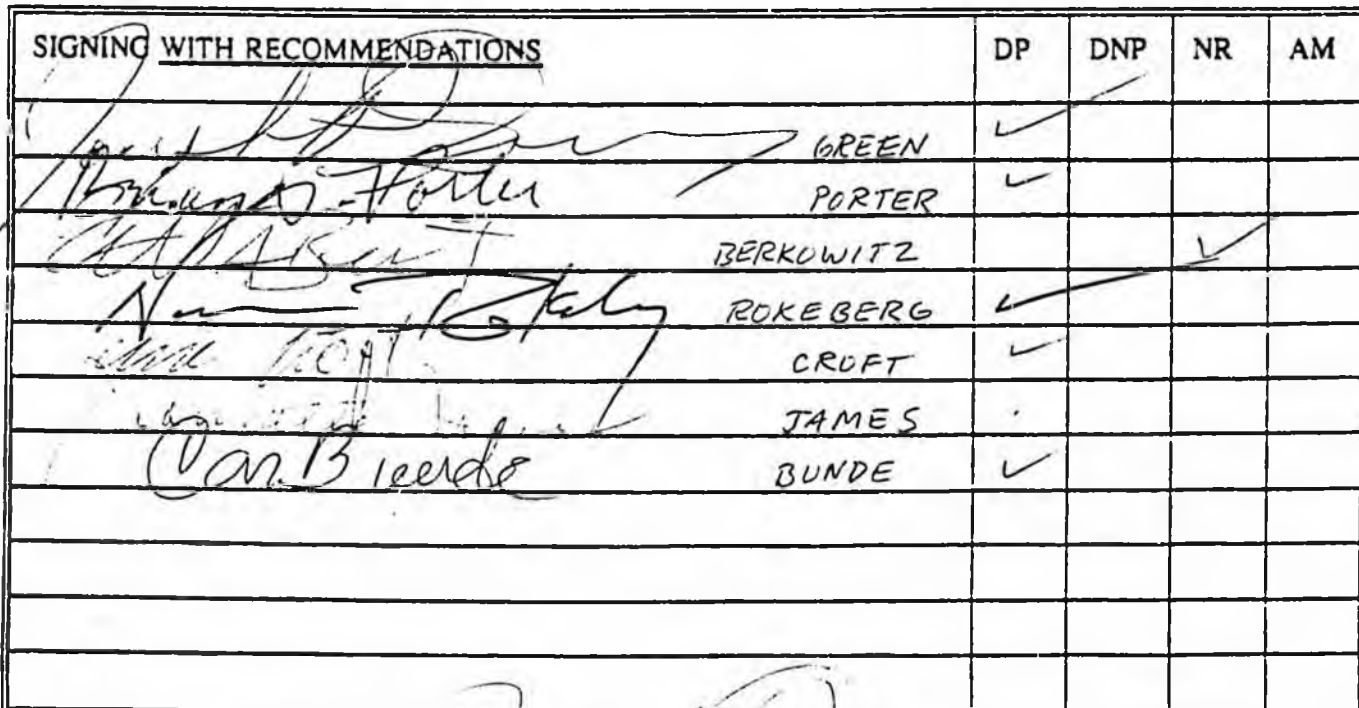 SIGNING WITH RECOMMENDATIONS DP DNP NR AM
GREEN ✓
Porter PORTER ✓
BERKOWITZ ✓
ROKEBERG ✓
CROFT ✓
JAMES
Con Bunde BUNDE ✓